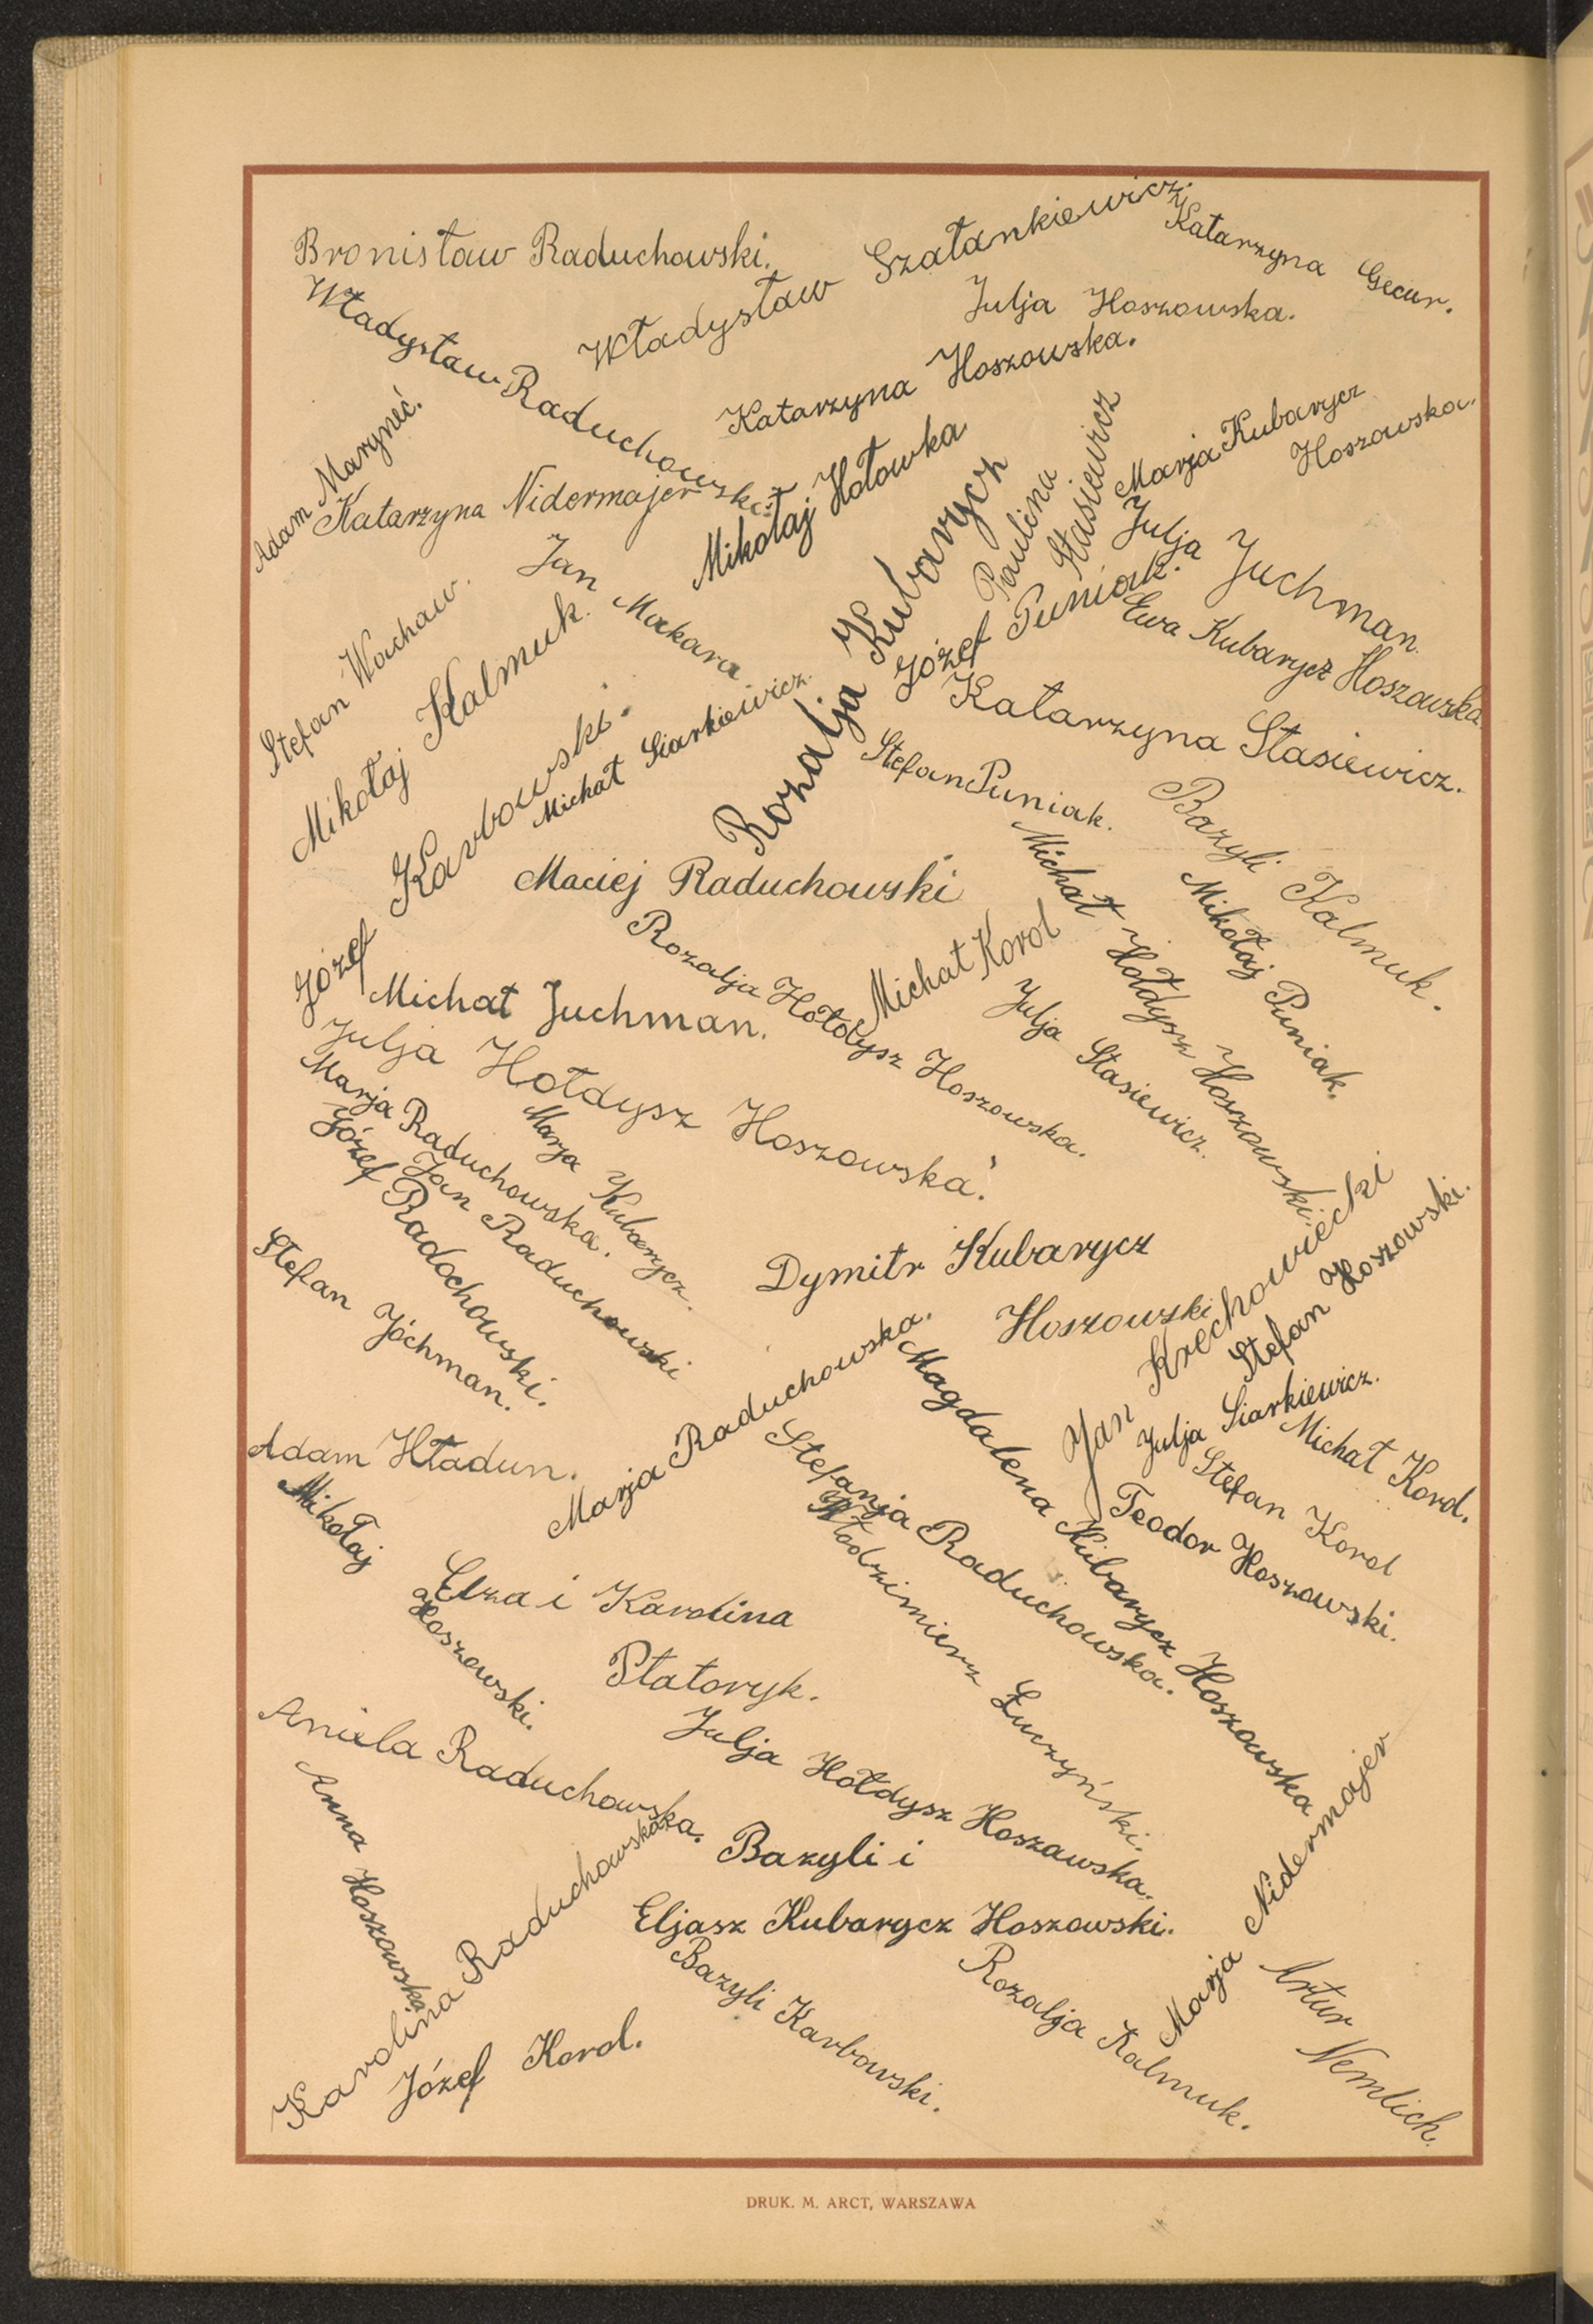 Bronisław Raduchowski.
Władysław Szałankiewicz.
Katarzyna Gecur.
Władysław Raduchowski.
Julja Hoszowska.
Katarzyna Hoszowska.
Adam Maryneć.
Katarzyna Nidermajer
Mikołaj Hołowka
Marja Kubarycz
Hoszowska.
Paulina
Stasiewicz
Julja Juchman.
Jan Makara.
Rozalja Kubarycz
Józef Puniak.
Ewa Kubarycz Hoszowska.
Stefan Wachaw.
Mikołaj Kalmuk.
Katarzyna Stasiewicz.
Michał Siarkiewicz.
Józef Karbowski.
Stefan Puniak.
Bazyli Kalmuk.
Maciej Raduchowski
Michał Hołdysz Hoszowski.
Mikołaj Puniak.
Rozalja Hołdysz Hoszowska.
Michał Korol
Michał Juchman.
Julja Stasiewicz.
Julja Hołdysz Hoszowska.
Marja Raduchowska.
Marja Kubarycz.
Józef Radochowski.
Jan Raduchowski
Stefan Jóchman.
Dymitr Kubarycz
Hoszowski
Jan Krechowiecki
Stefan Hoszowski.
Marja Raduchowska.
Magdalena Kubarycz Hoszowska
Julja Siarkiewicz.
Michał Korol.
Adam Hładun.
Stefanja Raduchowska.
Stefan Korol
Teodor Hoszowski.
Mikołaj
Hoszowski.
Włodzimierz Łuczyński.
Elza i Karolina
Płatoryk.
Aniela Raduchowska.
Julja Hołdysz Hoszowska.
Anna Hoszowska
Bazyli i
Eljasz Kubarycz Hoszowski.
Marja Nidermajer
Karolina Raduchowska
Bazyli Karbowski.
Rozalja Kalmuk.
Artur Nemlich.
Józef Korol.
DRUK. M. ARCT, WARSZAWA